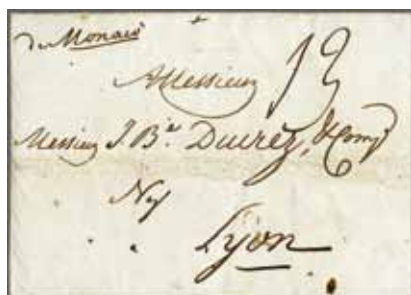 de Monaco
A Messieurs
13
Messieurs J. Bte. Ducrez, & Comp.
Ng
Lyon